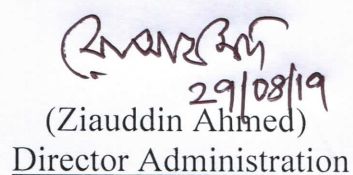 29/08/19
(Ziauddin Ahmed)
Director Administration